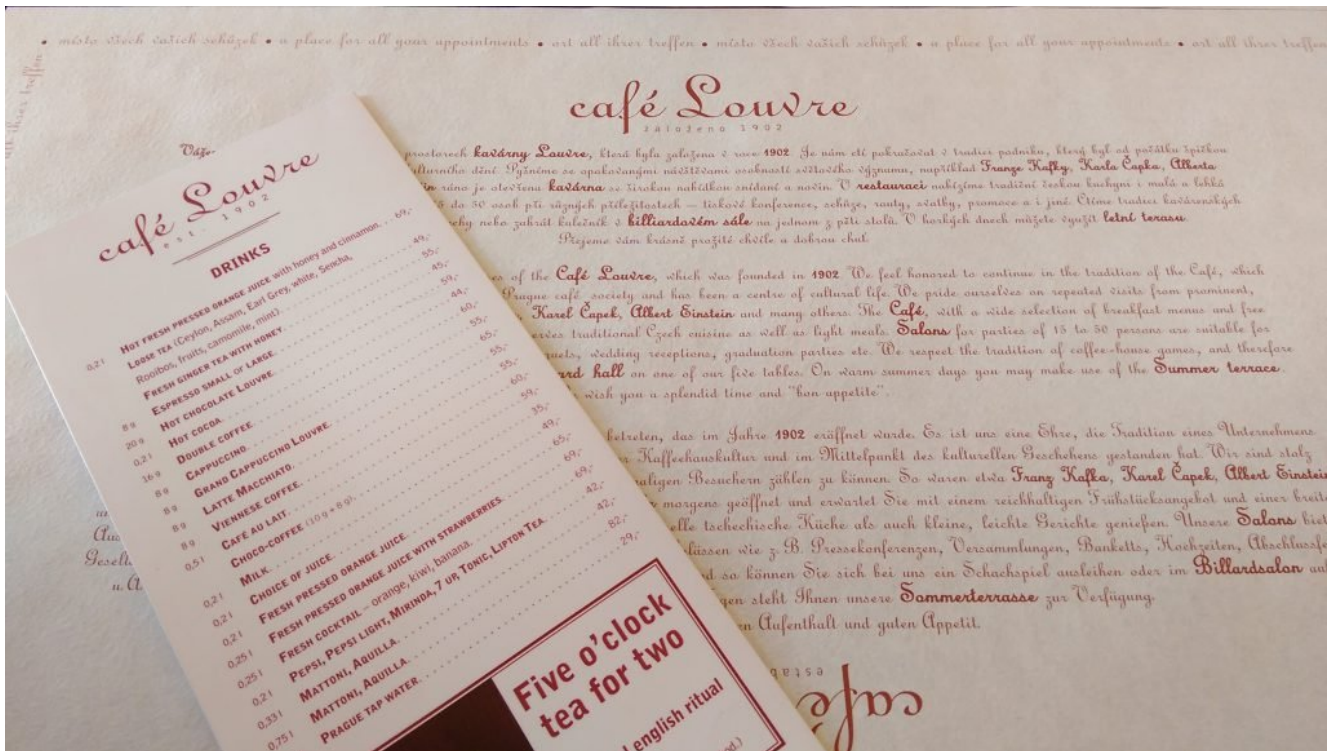 • místo všech vašich schůzek • a place for all your appointments • ort all ihrer treffen • místo všech vašich schůzek • a place for all your appointments • ort all ihrer treffen
all ihrer treffen
café Louvre
založeno 1902
Váže
prostorech kavárny Louvre, která byla založena v roce 1902. Je nám ctí pokračovat v tradici podniku, který byl od počátku špičkou
kulturního dění. Pyšníme se opakovanými návštěvami osobností světového významu, například Franze Kafky, Karla Čapka, Alberta
ráno je otevřena kavárna se širokou nabídkou snídaní a novin. V restauraci nabízíme tradiční českou kuchyni i malá a lehká
do 50 osob při různých příležitostech – tiskové konference, schůze, rauty, svatby, promoce a i jiné. Ctíme tradici kavárenských
nebo zahrát kulečník v billiardovém sále na jednom z pěti stolů. V horkých dnech můžete využít letní terasu.
Přejeme vám krásně prožité chvíle a dobrou chuť.
es of the Café Louvre, which was founded in 1902. We feel honored to continue in the tradition of the Café, which
Prague café society and has been a centre of cultural life. We pride ourselves on repeated visits from prominent,
Karel Čapek, Albert Einstein and many others. The Café, with a wide selection of breakfast menus and free
erves traditional Czech cuisine as well as light meals. Salons for parties of 15 to 50 persons are suitable for
uets, wedding receptions, graduation parties etc. We respect the tradition of coffee-house games, and therefore
ard hall on one of our five tables. On warm summer days you may make use of the Summer terrace.
wish you a splendid time and "bon appetite".
betreten, das im Jahre 1902 eröffnet wurde. Es ist uns eine Ehre, die Tradition eines Unternehmens
r Kaffeehauskultur und im Mittelpunkt des kulturellen Geschehens gestanden hat. Wir sind stolz
aligen Besuchern zählen zu können. So waren etwa Franz Kafka, Karel Čapek, Albert Einstein
morgens geöffnet und erwartet Sie mit einem reichhaltigen Frühstücksangebot und einer breite
elle tschechische Küche als auch kleine, leichte Gerichte genießen. Unsere Salons biet
lässen wie z. B. Pressekonferenzen, Versammlungen, Banketts, Hochzeiten, Abschlussfe
d so können Sie sich bei uns ein Schachspiel ausleihen oder im Billardsalon au
gen steht Ihnen unsere Sommerterrasse zur Verfügung.
n Aufenthalt und guten Appetit.
Gesell
u. A
café
café Louvre
est. 1902
DRINKS
0,2 l HOT FRESH PRESSED ORANGE JUICE with honey and cinnamon. 69,-
LOOSE TEA (Ceylon, Assam, Earl Grey, white, Sencha,
Rooibos, fruits, camomile, mint) 49,-
FRESH GINGER TEA WITH HONEY 55,-
8 g ESPRESSO SMALL OF LARGE 45,-
20 g HOT CHOCOLATE LOUVRE 59,-
0,2 l HOT COCOA 44,-
16 g DOUBLE COFFEE 60,-
8 g CAPPUCCINO 55,-
8 g GRAND CAPPUCCINO LOUVRE 65,-
8 g LATTE MACCHIATO 55,-
VIENNESE COFFEE 55,-
CAFÉ AU LAIT 60,-
CHOCO-COFFEE (10 g + 8 g) 59,-
0,2 l MILK 35,-
0,2 l CHOICE OF JUICE 49,-
0,2 l FRESH PRESSED ORANGE JUICE 65,-
0,25 l FRESH PRESSED ORANGE JUICE WITH STRAWBERRIES 69,-
0,25 l FRESH COCKTAIL – orange, kiwi, banana 69,-
0,2 l PEPSI, PEPSI LIGHT, MIRINDA, 7 UP, TONIC, LIPTON TEA 42,-
0,33 l MATTONI, AQUILLA 42,-
0,75 l MATTONI, AQUILLA 82,-
PRAGUE TAP WATER 29,-
Five o'clock
tea for two
english ritual